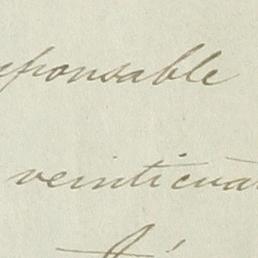 sponsable
veinticua